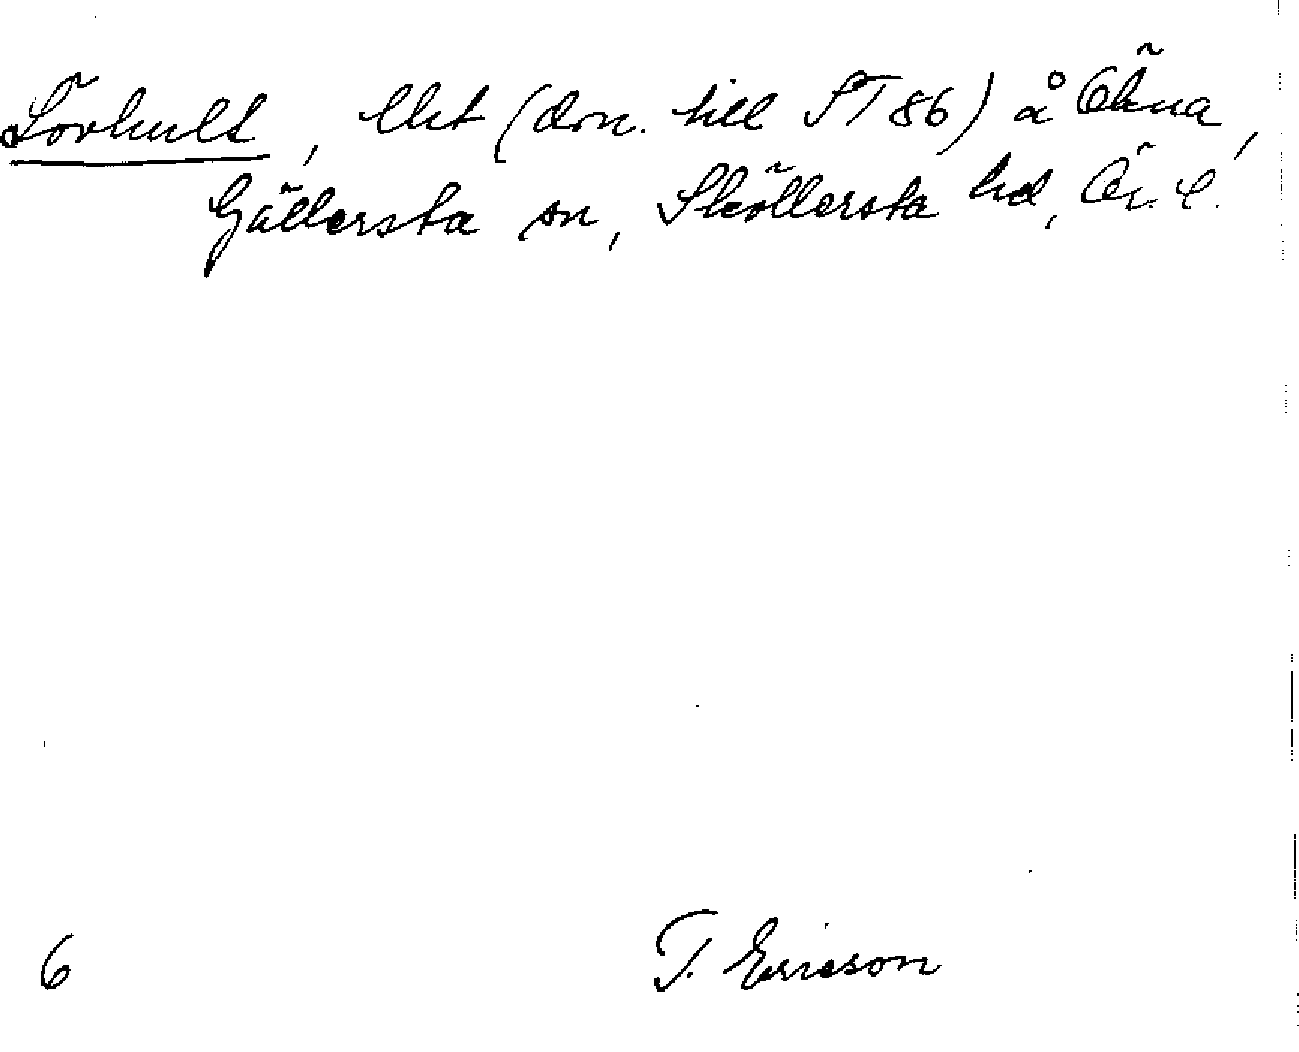 Lövhult, lht (dön. till ST 86) å Ökna,
Gällersta sn, Sköllersta hd, Ör. l.
6 T. Ericson